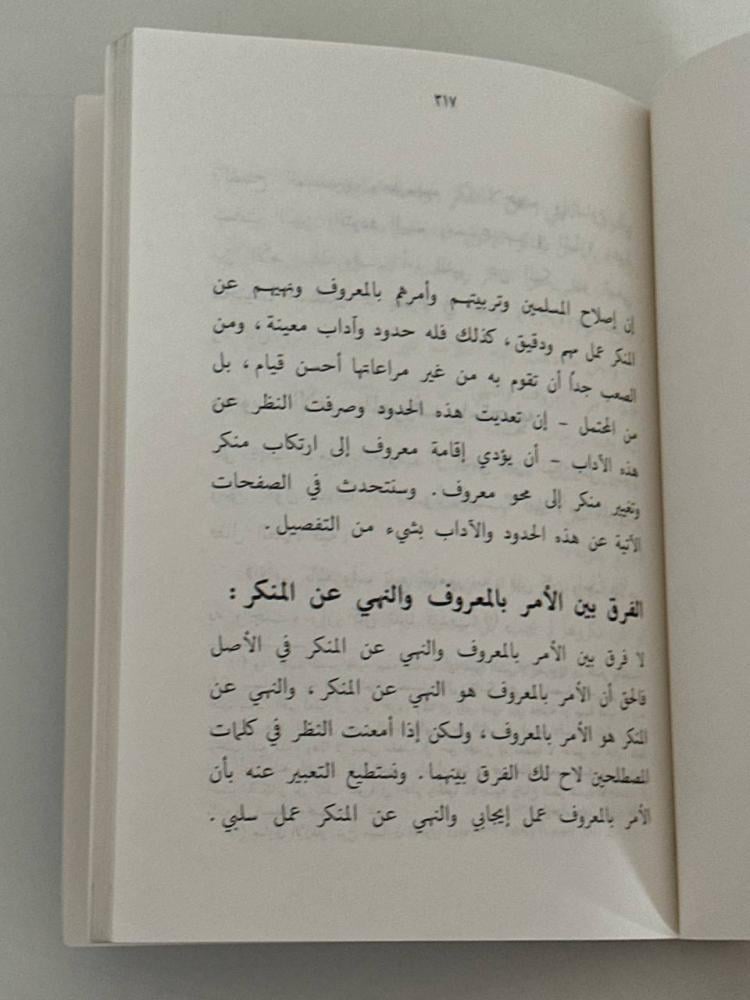 ٣١٧
إن إصلاح المسلمين وتربيتهم وأمرهم بالمعروف ونهيهم عن
المنكر عمل مهم ودقيق، كذلك فله حدود وآداب معينة، ومن
الصعب جداً أن تقوم به من غير مراعاتها أحسن قيام، بل
من المحتمل - إن تعديت هذه الحدود وصرفت النظر عن
هذه الآداب - أن يؤدي إقامة معروف إلى ارتكاب منكر
وتغيير منكر إلى محو معروف. وسنتحدث في الصفحات
الآتية عن هذه الحدود والآداب بشيء من التفصيل.
الفرق بين الأمر بالمعروف والنهي عن المنكر :
لا فرق بين الأمر بالمعروف والنهي عن المنكر في الأصل
فالحق أن الأمر بالمعروف هو النهي عن المنكر، والنهي عن
المنكر هو الأمر بالمعروف، ولكن إذا أمعنت النظر في كلمات
المصطلحين لاح لك الفرق بينهما. ونستطيع التعبير عنه بأن
الأمر بالمعروف عمل إيجابي والنهي عن المنكر عمل سلبي.